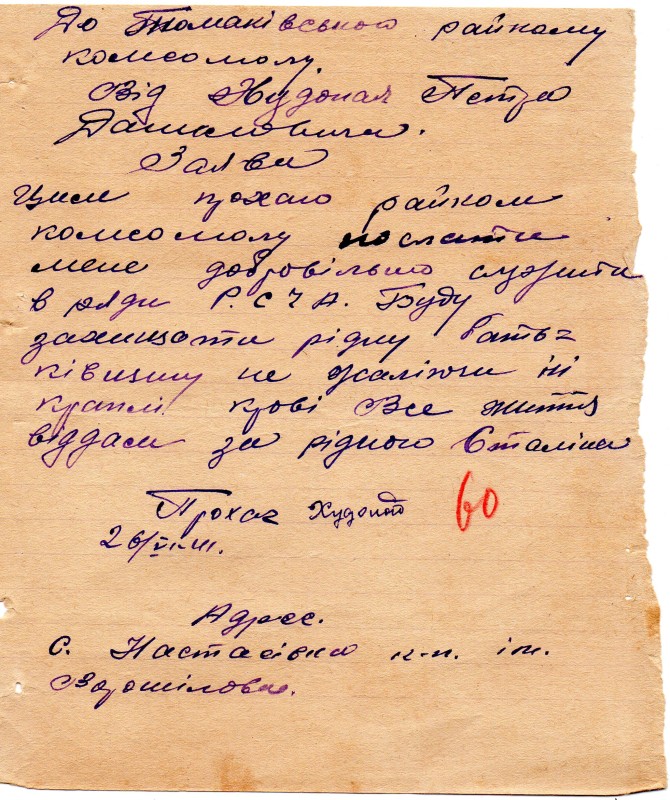 До Томаківського райкому
комсомолу
Від Худопал Петра
Даниловича.
Заява
Цим прохаю райком
комсомолу послати
мене добровільно служити
в ряди Р.С Ч А. Буду
захищати рідну бать=
ківщину не жаліючи ні
краплі крові Все життя
віддам за рідного Сталіна
Прохач
60
26/VI-41.
Адрес.
с. Настасівка к-п. ім.
Ворошілова.